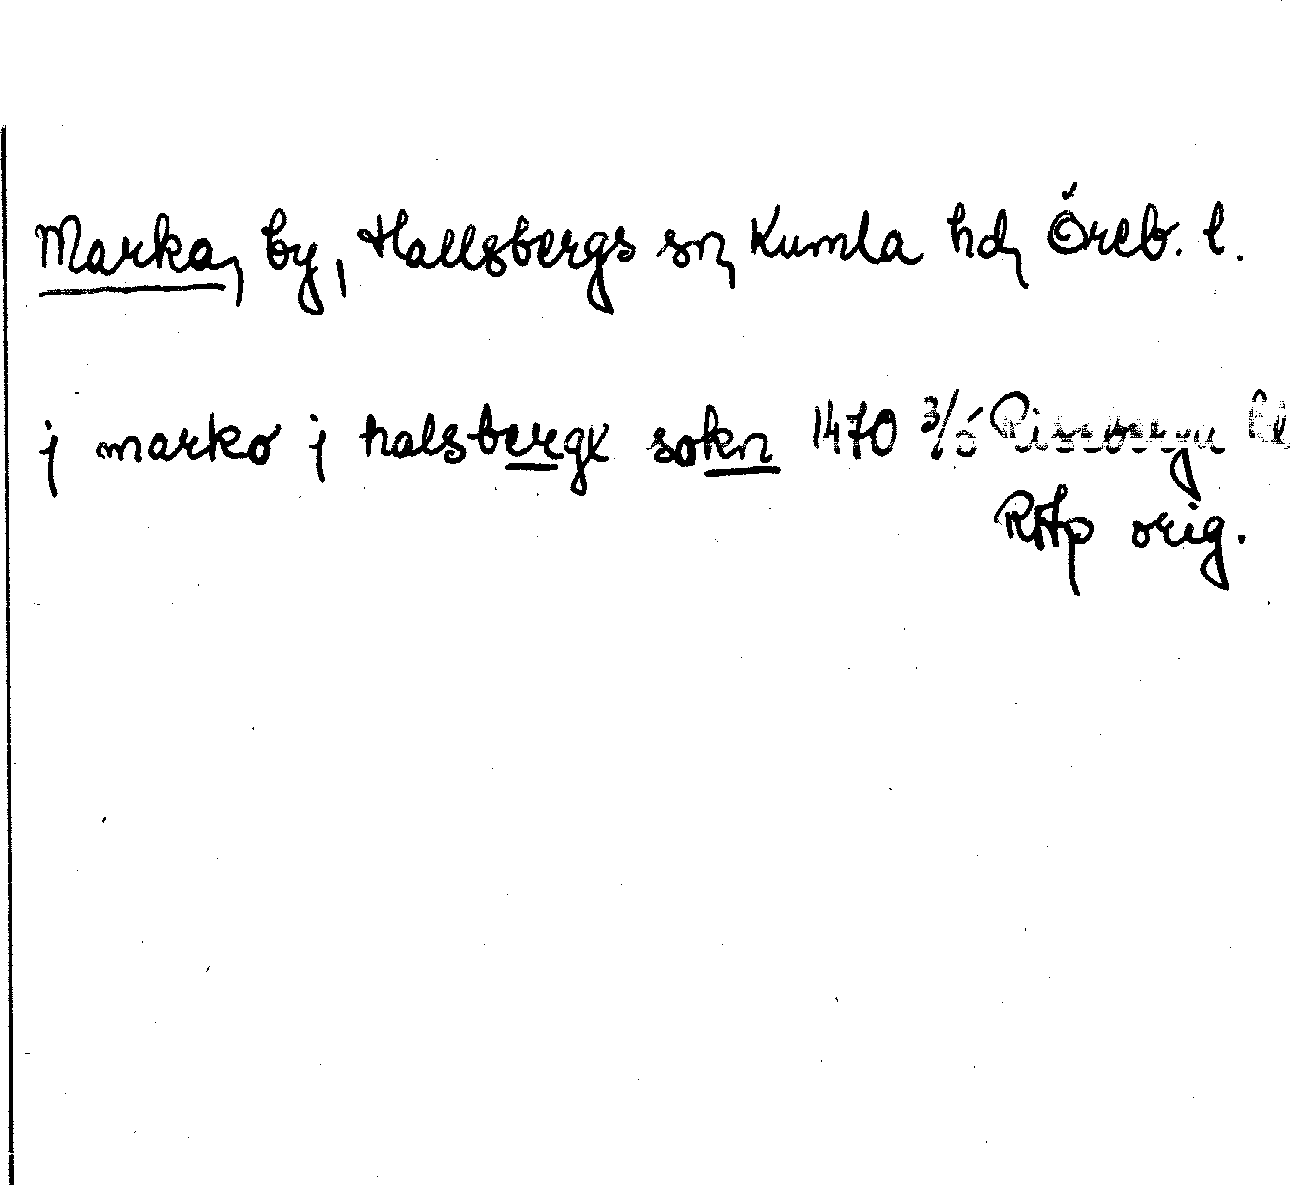 Marka, by, Hallsbergs sn, Kumla hd, Öreb. l.
j marko j halsbergx sokn 1470 3/6
RAp orig.